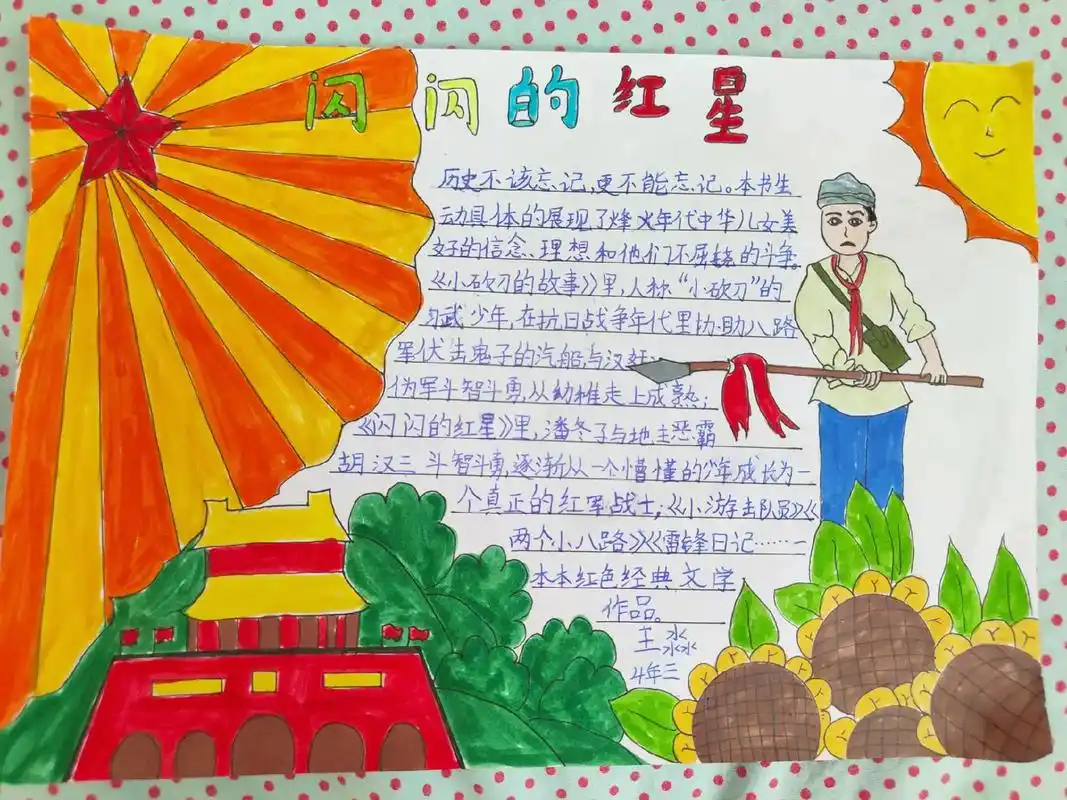 闪闪的红星
历史不该忘记,更不能忘记。本书生
动具体的展现了烽火年代中华儿女美
好的信念、理想和他们不屈挠的斗争。
《小砍刀的故事》里,人称“小砍刀”的
习武少年,在抗日战争年代里协助八路
军伏击鬼子的汽船,与汉奸
伪军斗智斗勇,从幼稚走上成熟;
《闪闪的红星》里,潘冬子与地主恶霸
胡汉三斗智斗勇,逐渐从一个懵懂的少年成长为一
个真正的红军战士;《小游击队员》《
两个小八路》《雷锋日记……一
本本红色经典文学
作品。
王淼
4年三